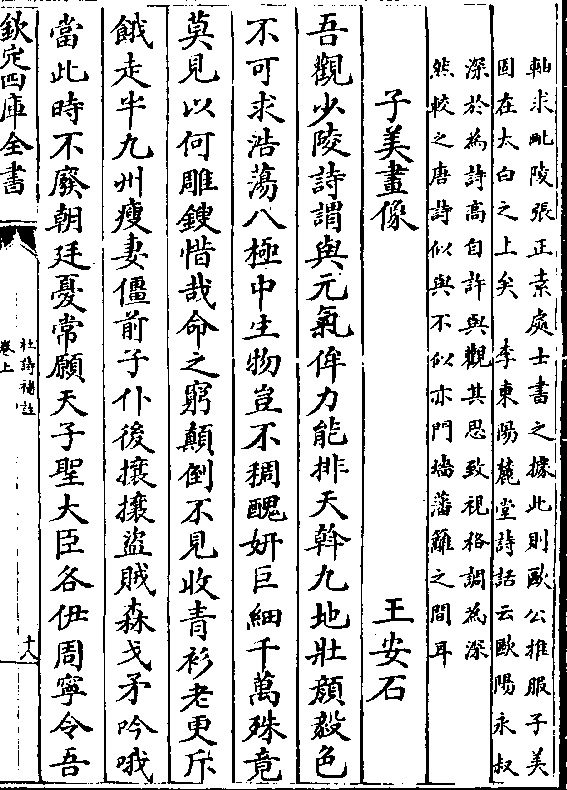 軸求毗陵張正素處士書之據此則歐公推服子美
固在太白之上矣　李東陽麓堂詩話云歐陽永叔
深於為詩高自許與觀其思致視格調為深
然較之唐詩似與不似亦門墻藩籬之間耳
子美畫像　王安石
吾觀少陵詩謂與元氣侔力能排天斡九地壯顔毅色
不可求浩蕩八極中生物豈不稠醜妍巨細千萬殊竟
莫見以何雕鎪惜哉命之窮顛倒不見收青衫老更斥
餓走半九州瘦妻僵前子仆後攘攘盜賊森戈矛吟哦
當此時不廢朝廷憂常願天子聖大臣各伊周寧令吾
欽定四庫全書
杜詩補註
卷上
十八